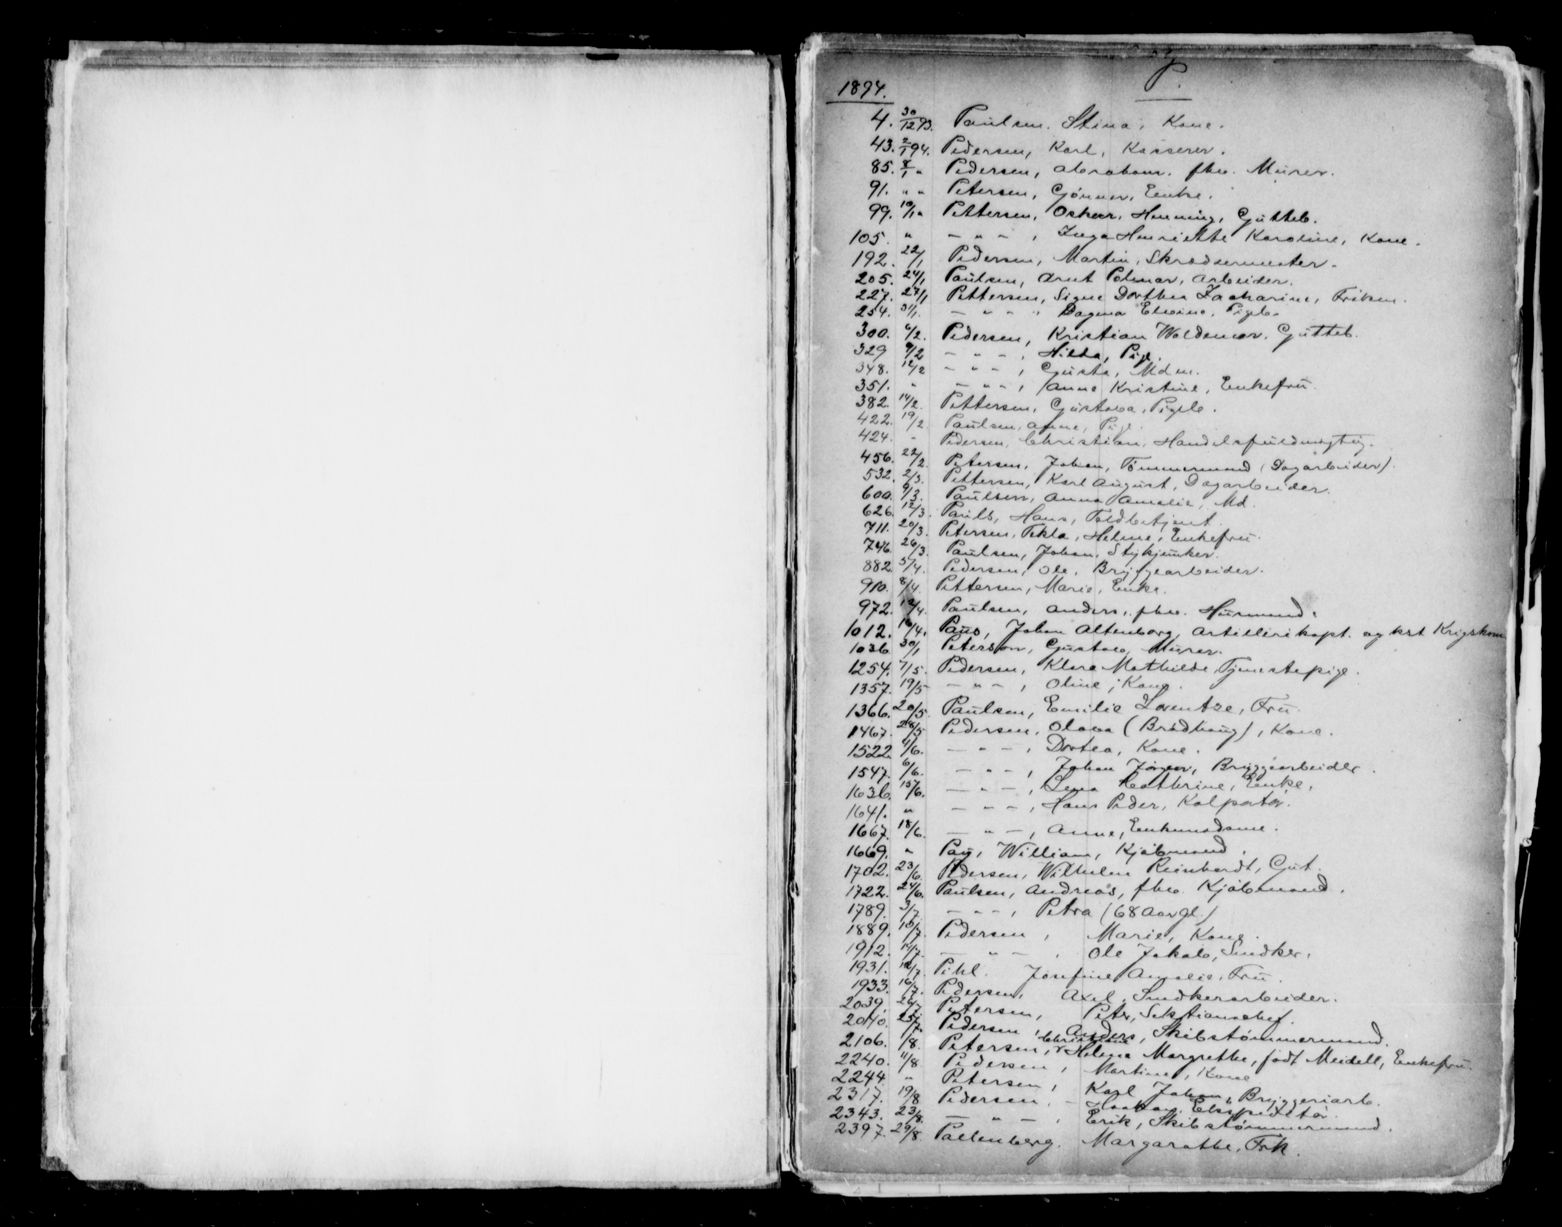 P.
1894.
4. 30/12 93. Paulsen, Stina, Kone.
43. 2/1 94. Pedersen, Karl, Kasserer.
85. 8/1 " Pedersen, Abraham, fhv. Murer.
91. " " Petersen, Gunnar, Enke.
99. 10/1 " Pettersen, Oskar, Henning, Gutteb.
105. " — " — , Inga Henriette Karoline, Kone.
192. 22/1 Pedersen, Martin, Skræddermester.
205. 24/1 Paulsen, Arnt Polmar, Arbeider.
227. 27/1 Pettersen, Signe Dorthea Zacharine, Frøken.
254. 31/1. — " " , Dagma Elvine, Pigeb.
300. 6/2. Pedersen, Kristian Waldemar, Gutteb.
329 9/2 — " — , Hilda, Pige.
348. 12/2 — " — , Gusta, Mdm.
351. " — " — , Anne Kristine, Enkefru.
382. 14/2. Pettersen, Gustava, Pigeb.
422. 19/2 Paulsen, Anne, Pige.
424. " Pedersen, Christian, Handelsfuldmægtig.
456. 22/2. Petersen, Johan, Tømmermand (Dagarbeider).
532. 2/3. Pettersen, Karl August, Dagarbeider.
600. 9/3. Paulsen, Anna Amalie, Md.
626. 12/3. Pauls, Hans, Toldbetjent.
711. 20/3. Petersen, Tekla, Helene, Enkefru.
746. 26/3. Paulsen, Johan, Stykjunker.
882. 5/4. Pedersen, Ole, Bryggearbeider.
910. 8/4. Pettersen, Marie, Enke.
972. 12/4. Paulsen, Anders, fhv. Husmand.
1012. 16/4. Paus, Johan Altenborg, Artillerikapt. og kst Krigskom
1036. 30/1 Peterson, Gustav, Murer.
1254. 7/5. Pedersen, Klara Mathilde, Tjenestepige.
1357. 19/5 — " — , Oline, Kone.
1366. 20/5. Paulsen, Emilie Lorentze, Fru.
1467. 28/5 Pedersen, Olava (Brådhaug), Kone.
1522 4/6. — " — , Dortea, Kone.
1547. 6/6. — " — , Johan Jørgen, Bryggearbeider.
1636. 15/6. — " — , Lena Cathrine, Enke.
1641. " — " — , Hans Peder, Kolportør.
1667. 18/6. — " — , Anne, Enkemadame.
1669. " Pay, William, Kjøbmand.
1702. 23/6. Pedersen, Wilhelm Reinhardt, Gut.
1722. 24/6. Paulsen, Andreas, fhv. Kjøbmand.
1789. 3/7. — " — , Petra (68 Aar gl.)
1889. 10/7. Pedersen, Marie, Kone.
1912. 14/7. — " — , Ole Jakob, Snedker.
1931. 16/7. Pihl. Josefine Amalie, Fru.
1933. 16/7. Pedersen, Axel, Snedkerarbeider.
2039. 24/7. Petersen, Peter, Sektionschef.
2040. 25/7. Pedersen, Anders, Skibstømmermand.
2106. 1/8. Petersen, Christiane Helene Margrethe, født Meidell, Enkefru.
2240. 11/8 Pedersen, Martine, Kone
2244 " Petersen, Karl Johan, Bryggeriarb.
2317. 19/8 Pedersen. — Haakon, Ekspeditør.
2343. 23/8. — " — , Erik, Skibstømmermand.
2397. 29/8. Pallenberg. Margarethe, Frk.